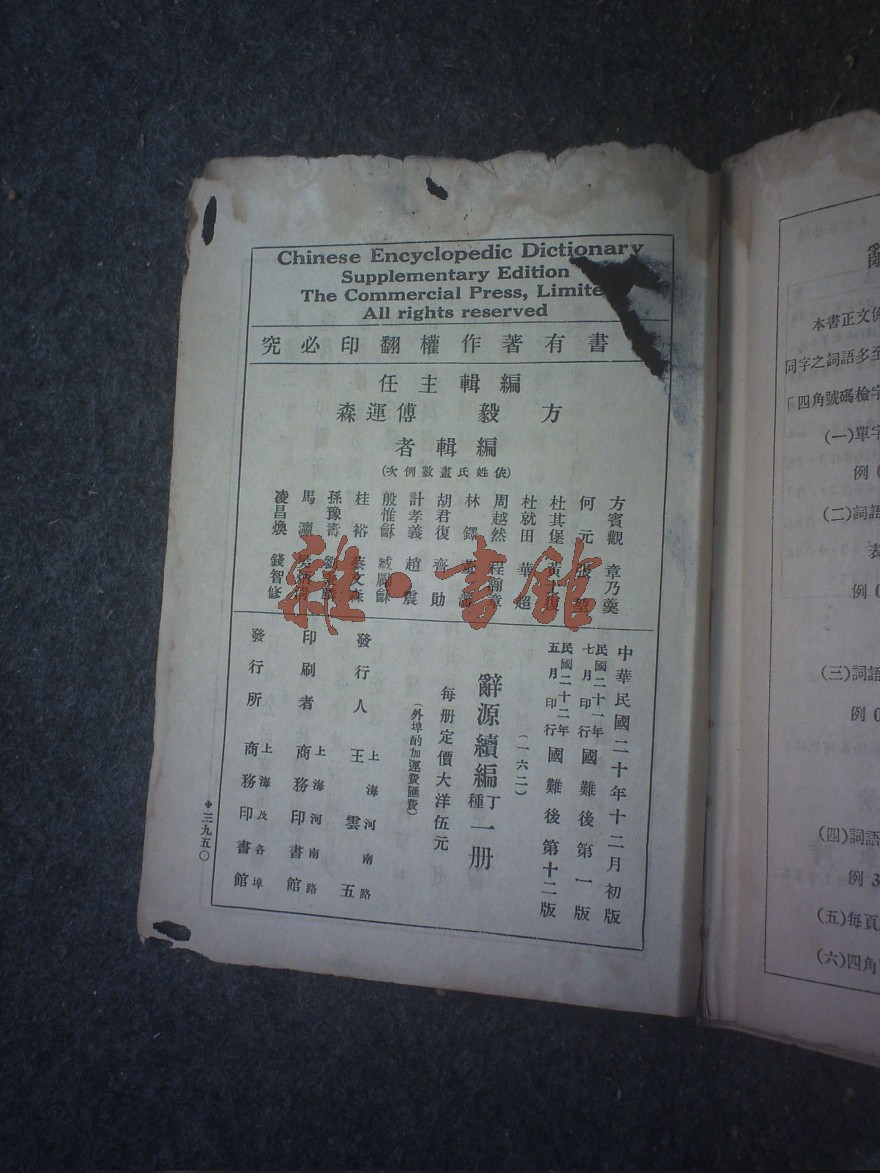 Chinese Encyclopedic Dictionary
Supplementary Edition
The Commercial Press, Limite
All rights reserved
究必印翻權作著有書
任主輯編
森運傅 毅方
者輯編
(次例數畫氏姓依)
方賓觀 章乃羹
何元 張堃
杜其堡 黃
杜就田 華超
周越然 程瀚章
林鐸
胡君復 齊勛
計孝義 趙震
殷惟龢 臧勵龢
桂裕 蔡文森
孫豫壽
馬瀛
凌昌煥 錢智修
中華民國二十年十二月初版
民國二十一年七月印行國難後第一版
民國二十二年五月印行國難後第十二版
(一六二)
辭源續編丁種一册
每册定價大洋伍元
(外埠酌加運費匯費)
發行人 王雲五
上海河南路
印刷者 商務印書館
上海河南路
發行所 商務印書館
上海及各埠
三九五〇
雜·書館
辭
本書正文係
同字之詞語多至
「四角號碼檢字
(一)單字
例
(二)詞語
表
例
(三)詞語
例
(四)詞語
例 3
(五)每頁
(六)四角